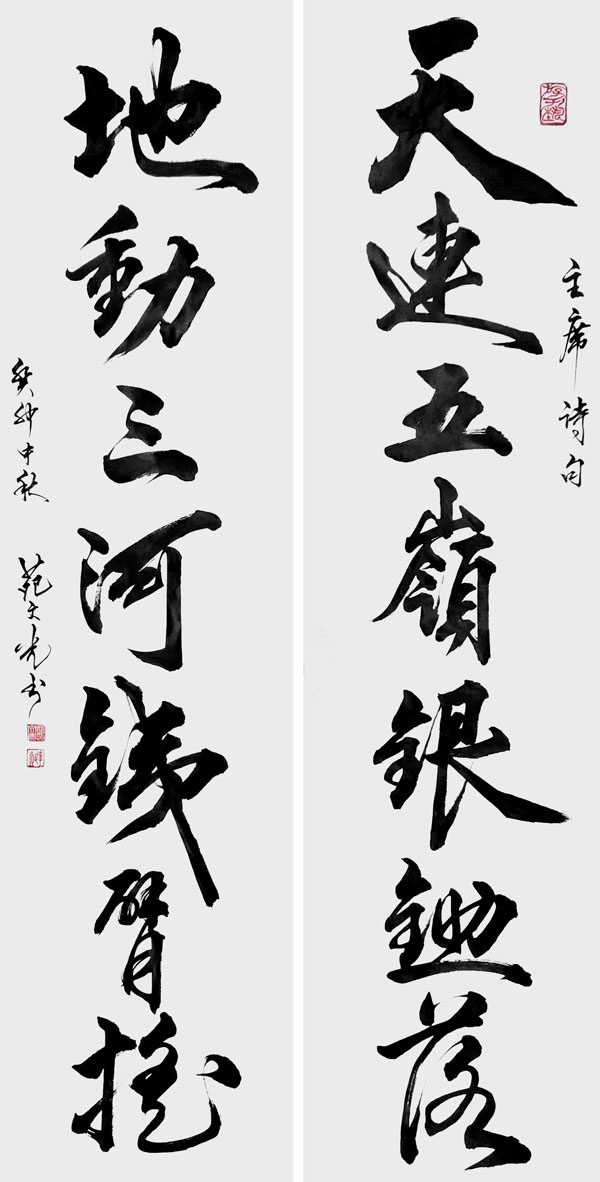 主席诗句
天連五嶺銀鋤落
地動三河鐵臂搖
癸卯中秋 苑文光书